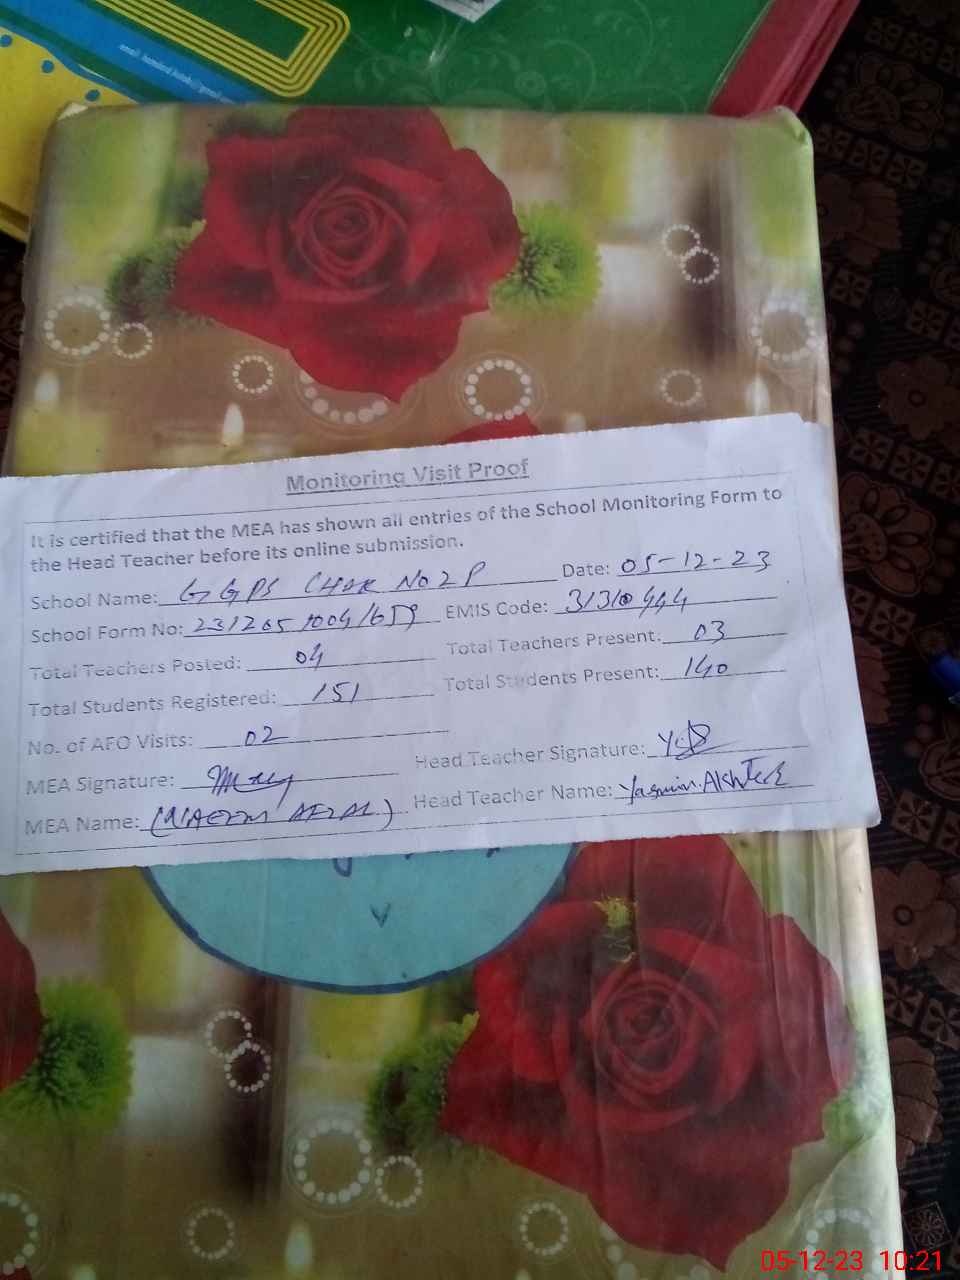 Monitoring Visit Proof
It is certified that the MEA has shown all entries of the School Monitoring Form to
the Head Teacher before its online submission.
School Name: GGPS CHAK No 2 P Date: 05-12-23
School Form No: EMIS Code: 31310444
Total Teachers Posted: 04 Total Teachers Present: 03
Total Students Registered: 151 Total Students Present: 140
No. of AFO Visits: 02
MEA Signature: Head Teacher Signature:
MEA Name: Head Teacher Name: Yasmin Akhter
05-12-23 10:21